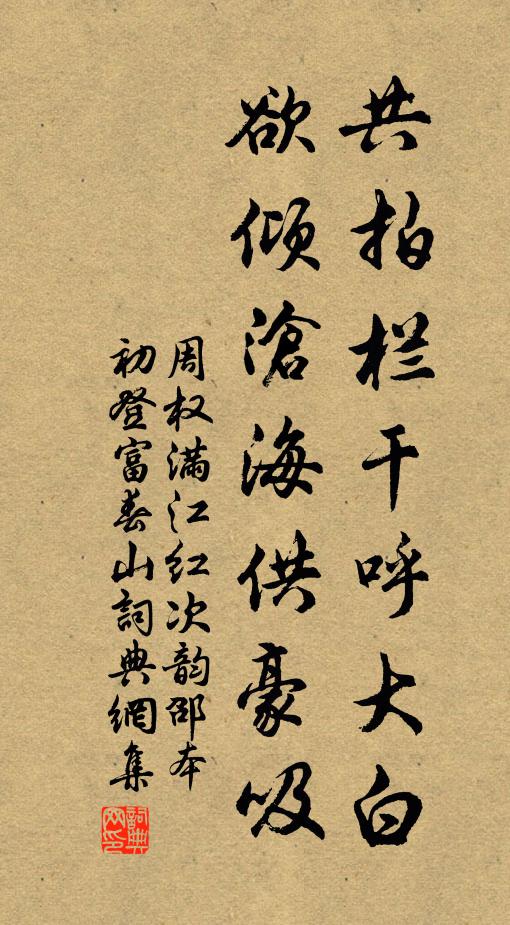 共拍栏干呼大白
欲倾滄海供豪吸
周权满江红次韵邵本
初登富春山詞典網集
詞典网印